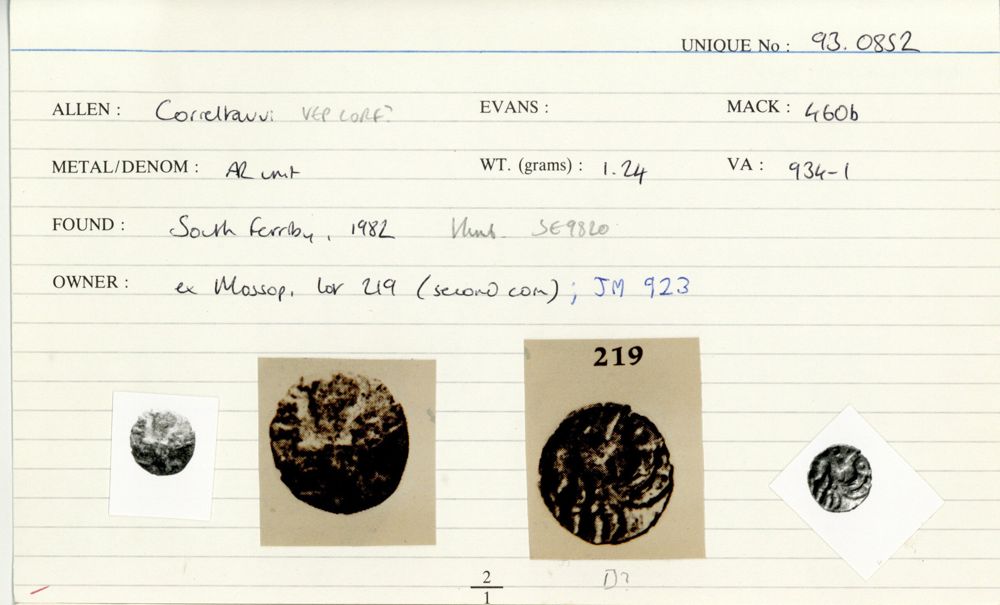 UNIQUE No : 93.0852
ALLEN : Correltauvi VEP CORF? EVANS : MACK : 460b
METAL/DENOM : AR unit WT. (grams) : 1.24 VA : 934-1
FOUND : South Ferriby, 1982 Humb. SE9820
OWNER : ex Mossop, lot 219 (second coin) ; JM 923
219
2
1
D?